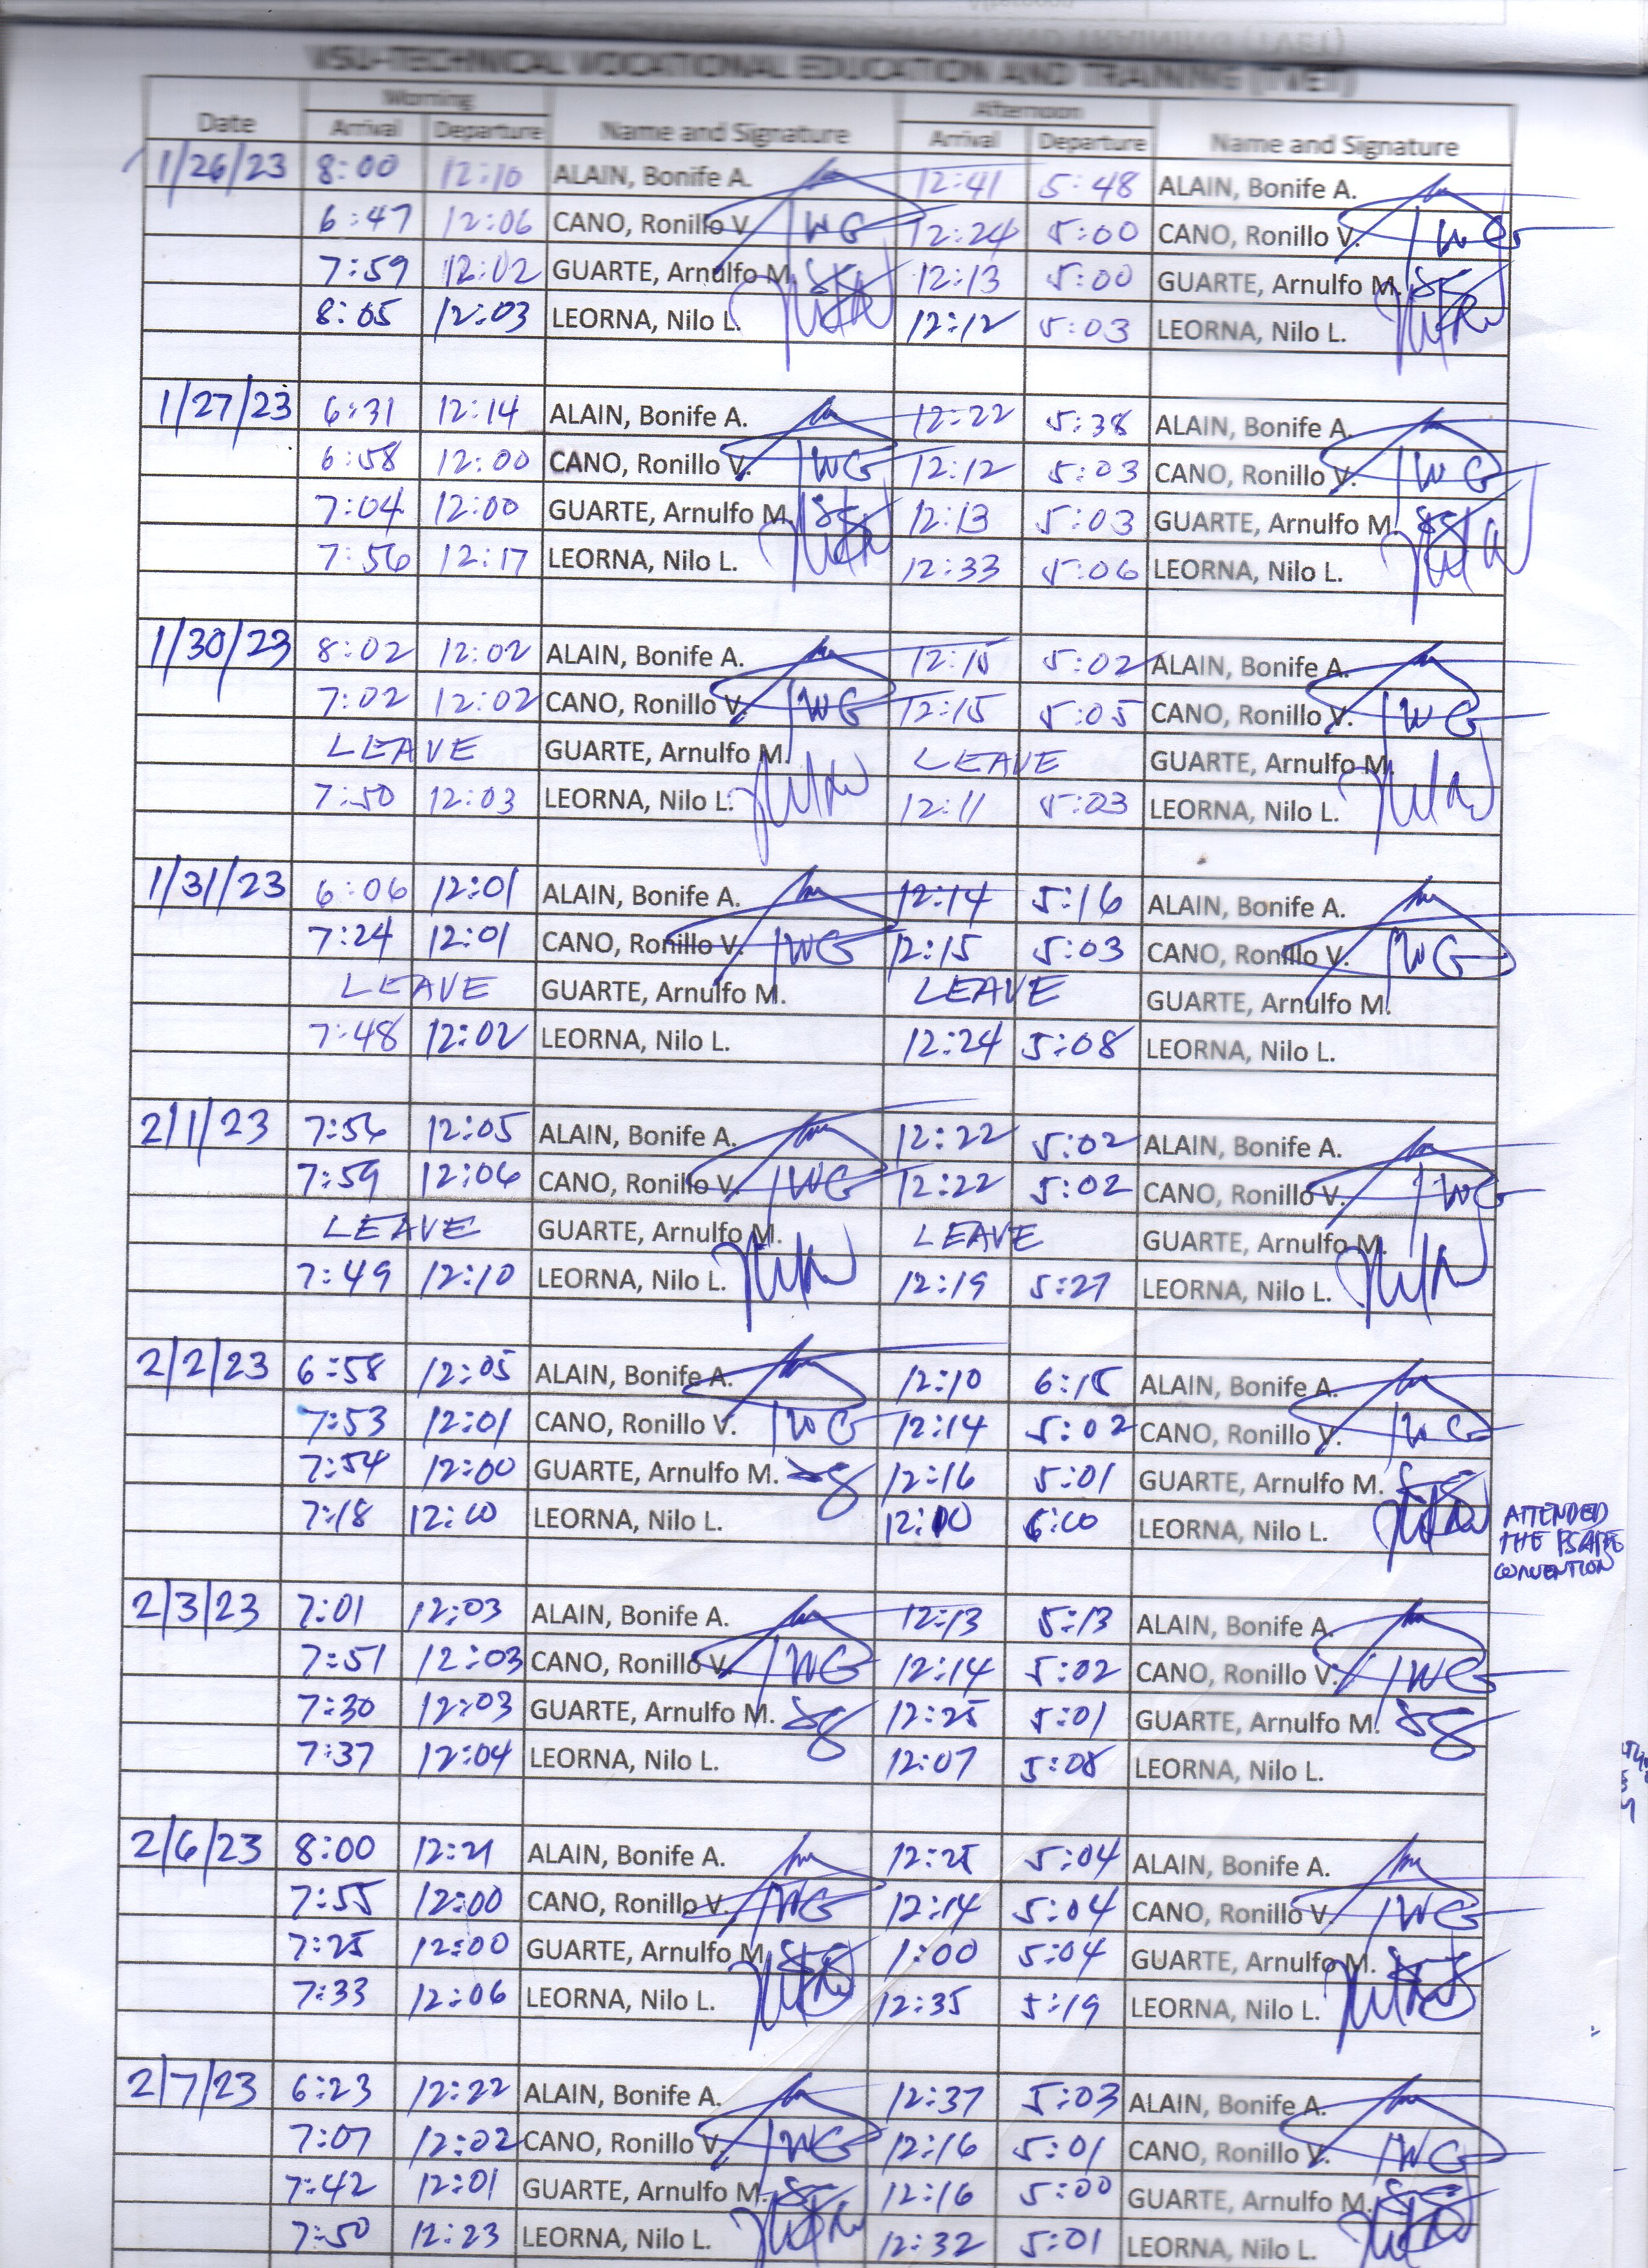 VSU-TECHNICAL VOCATIONAL EDUCATION AND TRAINING (TVET)
Morning Afternoon
Date Arrival Departure Name and Signature Arrival Departure Name and Signature
1/26/23 8:00 12:10 ALAIN, Bonife A. 12:41 5:48 ALAIN, Bonife A.
6:47 12:06 CANO, Ronillo V. 12:24 5:00 CANO, Ronillo V.
7:59 12:02 GUARTE, Arnulfo M. 12:13 5:00 GUARTE, Arnulfo M.
8:05 12:03 LEORNA, Nilo L. 12:12 5:03 LEORNA, Nilo L.
1/27/23 6:31 12:14 ALAIN, Bonife A. 12:22 5:38 ALAIN, Bonife A.
6:58 12:00 CANO, Ronillo V. 12:12 5:03 CANO, Ronillo V.
7:04 12:00 GUARTE, Arnulfo M. 12:13 5:03 GUARTE, Arnulfo M.
7:56 12:17 LEORNA, Nilo L. 12:33 5:06 LEORNA, Nilo L.
1/30/23 8:02 12:02 ALAIN, Bonife A. 12:15 5:02 ALAIN, Bonife A.
7:02 12:02 CANO, Ronillo V. 12:15 5:05 CANO, Ronillo V.
LEAVE GUARTE, Arnulfo M. LEAVE GUARTE, Arnulfo M.
7:50 12:03 LEORNA, Nilo L. 12:11 5:03 LEORNA, Nilo L.
1/31/23 6:06 12:01 ALAIN, Bonife A. 12:14 5:16 ALAIN, Bonife A.
7:24 12:01 CANO, Ronillo V. 12:15 5:03 CANO, Ronillo V.
LEAVE GUARTE, Arnulfo M. LEAVE GUARTE, Arnulfo M.
7:48 12:02 LEORNA, Nilo L. 12:24 5:08 LEORNA, Nilo L.
2/1/23 7:56 12:05 ALAIN, Bonife A. 12:22 5:02 ALAIN, Bonife A.
7:59 12:06 CANO, Ronillo V. 12:22 5:02 CANO, Ronillo V.
LEAVE GUARTE, Arnulfo M. LEAVE GUARTE, Arnulfo M.
7:49 12:10 LEORNA, Nilo L. 12:19 5:27 LEORNA, Nilo L.
2/2/23 6:58 12:05 ALAIN, Bonife A. 12:10 6:15 ALAIN, Bonife A.
7:53 12:01 CANO, Ronillo V. 12:14 5:02 CANO, Ronillo V.
7:54 12:00 GUARTE, Arnulfo M. 12:16 5:01 GUARTE, Arnulfo M.
7:18 12:00 LEORNA, Nilo L. 12:10 6:00 LEORNA, Nilo L. ATTENDED
THE
CONVENTION
2/3/23 7:01 12:03 ALAIN, Bonife A. 12:13 5:13 ALAIN, Bonife A.
7:51 12:03 CANO, Ronillo V. 12:14 5:02 CANO, Ronillo V.
7:30 12:03 GUARTE, Arnulfo M. 12:25 5:01 GUARTE, Arnulfo M.
7:37 12:04 LEORNA, Nilo L. 12:07 5:08 LEORNA, Nilo L.
2/6/23 8:00 12:21 ALAIN, Bonife A. 12:25 5:04 ALAIN, Bonife A.
7:55 12:00 CANO, Ronillo V. 12:14 5:04 CANO, Ronillo V.
7:25 12:00 GUARTE, Arnulfo M. 1:00 5:04 GUARTE, Arnulfo M.
7:33 12:06 LEORNA, Nilo L. 12:35 5:19 LEORNA, Nilo L.
2/7/23 6:23 12:22 ALAIN, Bonife A. 12:37 5:03 ALAIN, Bonife A.
7:07 12:02 CANO, Ronillo V. 12:16 5:01 CANO, Ronillo V.
7:42 12:01 GUARTE, Arnulfo M. 12:16 5:00 GUARTE, Arnulfo M.
7:50 12:23 LEORNA, Nilo L. 12:32 5:01 LEORNA, Nilo L.